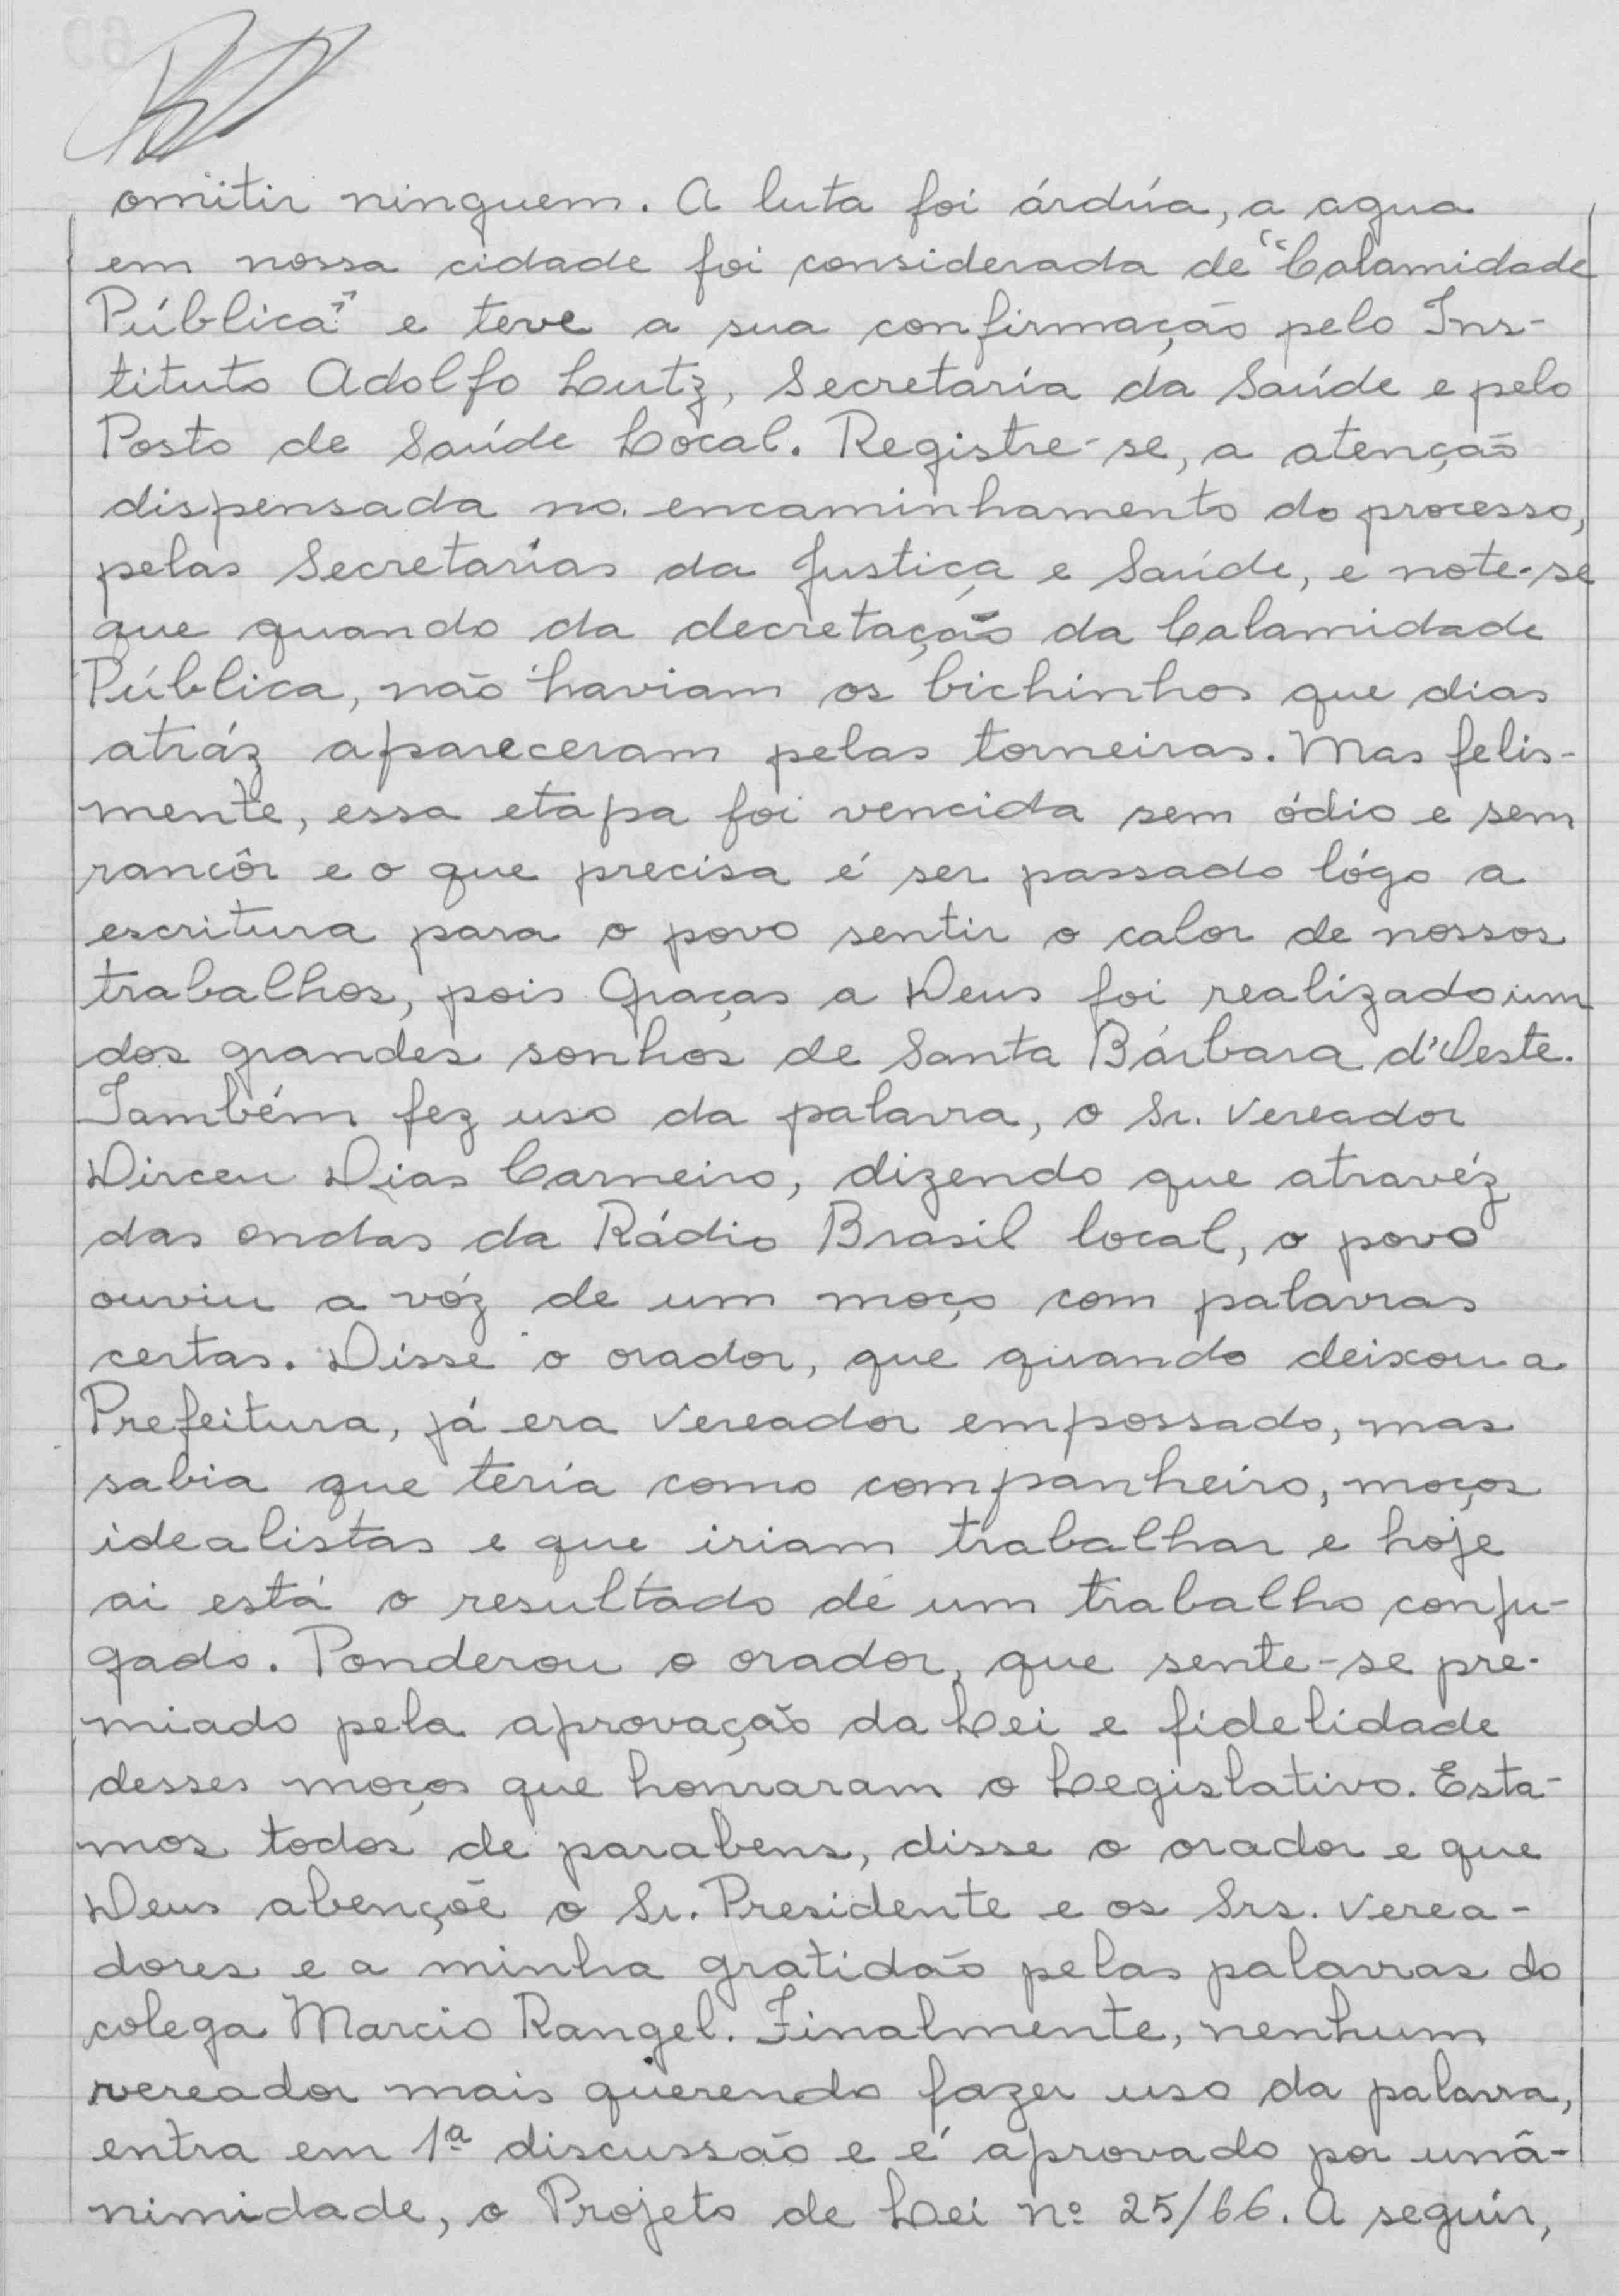 omitir ninguem. A luta foi árdúa, a agua
em nossa cidade foi considerada de "Calamidade
Pública" e teve a sua confirmação pelo Ins-
tituto Adolfo Lutz, Secretaria da Saúde e pelo
Posto de Saúde Local. Registre-se, a atenção
dispensada no encaminhamento do processo,
pelas Secretarias da Justiça e Saúde, e note-se
que quando da decretação da Calamidade
Pública, não haviam os bichinhos que dias
atráz apareceram pelas torneiras. Mas felis-
mente, essa etapa foi vencida sem ódio e sem
rancôr e o que precisa é ser passado lógo a
escritura para o povo sentir o calor de nossos
trabalhos, pois Graças a Deus foi realizado um
dos grandes sonhos de Santa Bárbara d'Oeste.
Também fez uso da palavra, o Sr. Vereador
Dirceu Dias Carneiro, dizendo que atravéz
das ondas da Rádio Brasil local, o povo
ouviu a vóz de um moço com palavras
certas. Disse o orador, que quando deixou a
Prefeitura, já era Vereador empossado, mas
sabia que teria como companheiro, moços
idealistas e que iriam trabalhar e hoje
ai está o resultado de um trabalho conju-
gado. Ponderou o orador, que sente-se pre-
miado pela aprovação da Lei e fidelidade
desses moços que honraram o Legislativo. Esta-
mos todos de parabens, disse o orador e que
Deus abençõe o Sr. Presidente e os Srs. Verea-
dores e a minha gratidão pelas palavras do
colega Marcio Rangel. Finalmente, nenhum
vereador mais querendo fazer uso da palavra,
entra em 1ª discussão e é aprovado por unâ-
nimidade, o Projeto de Lei nº 25/66. A seguir,